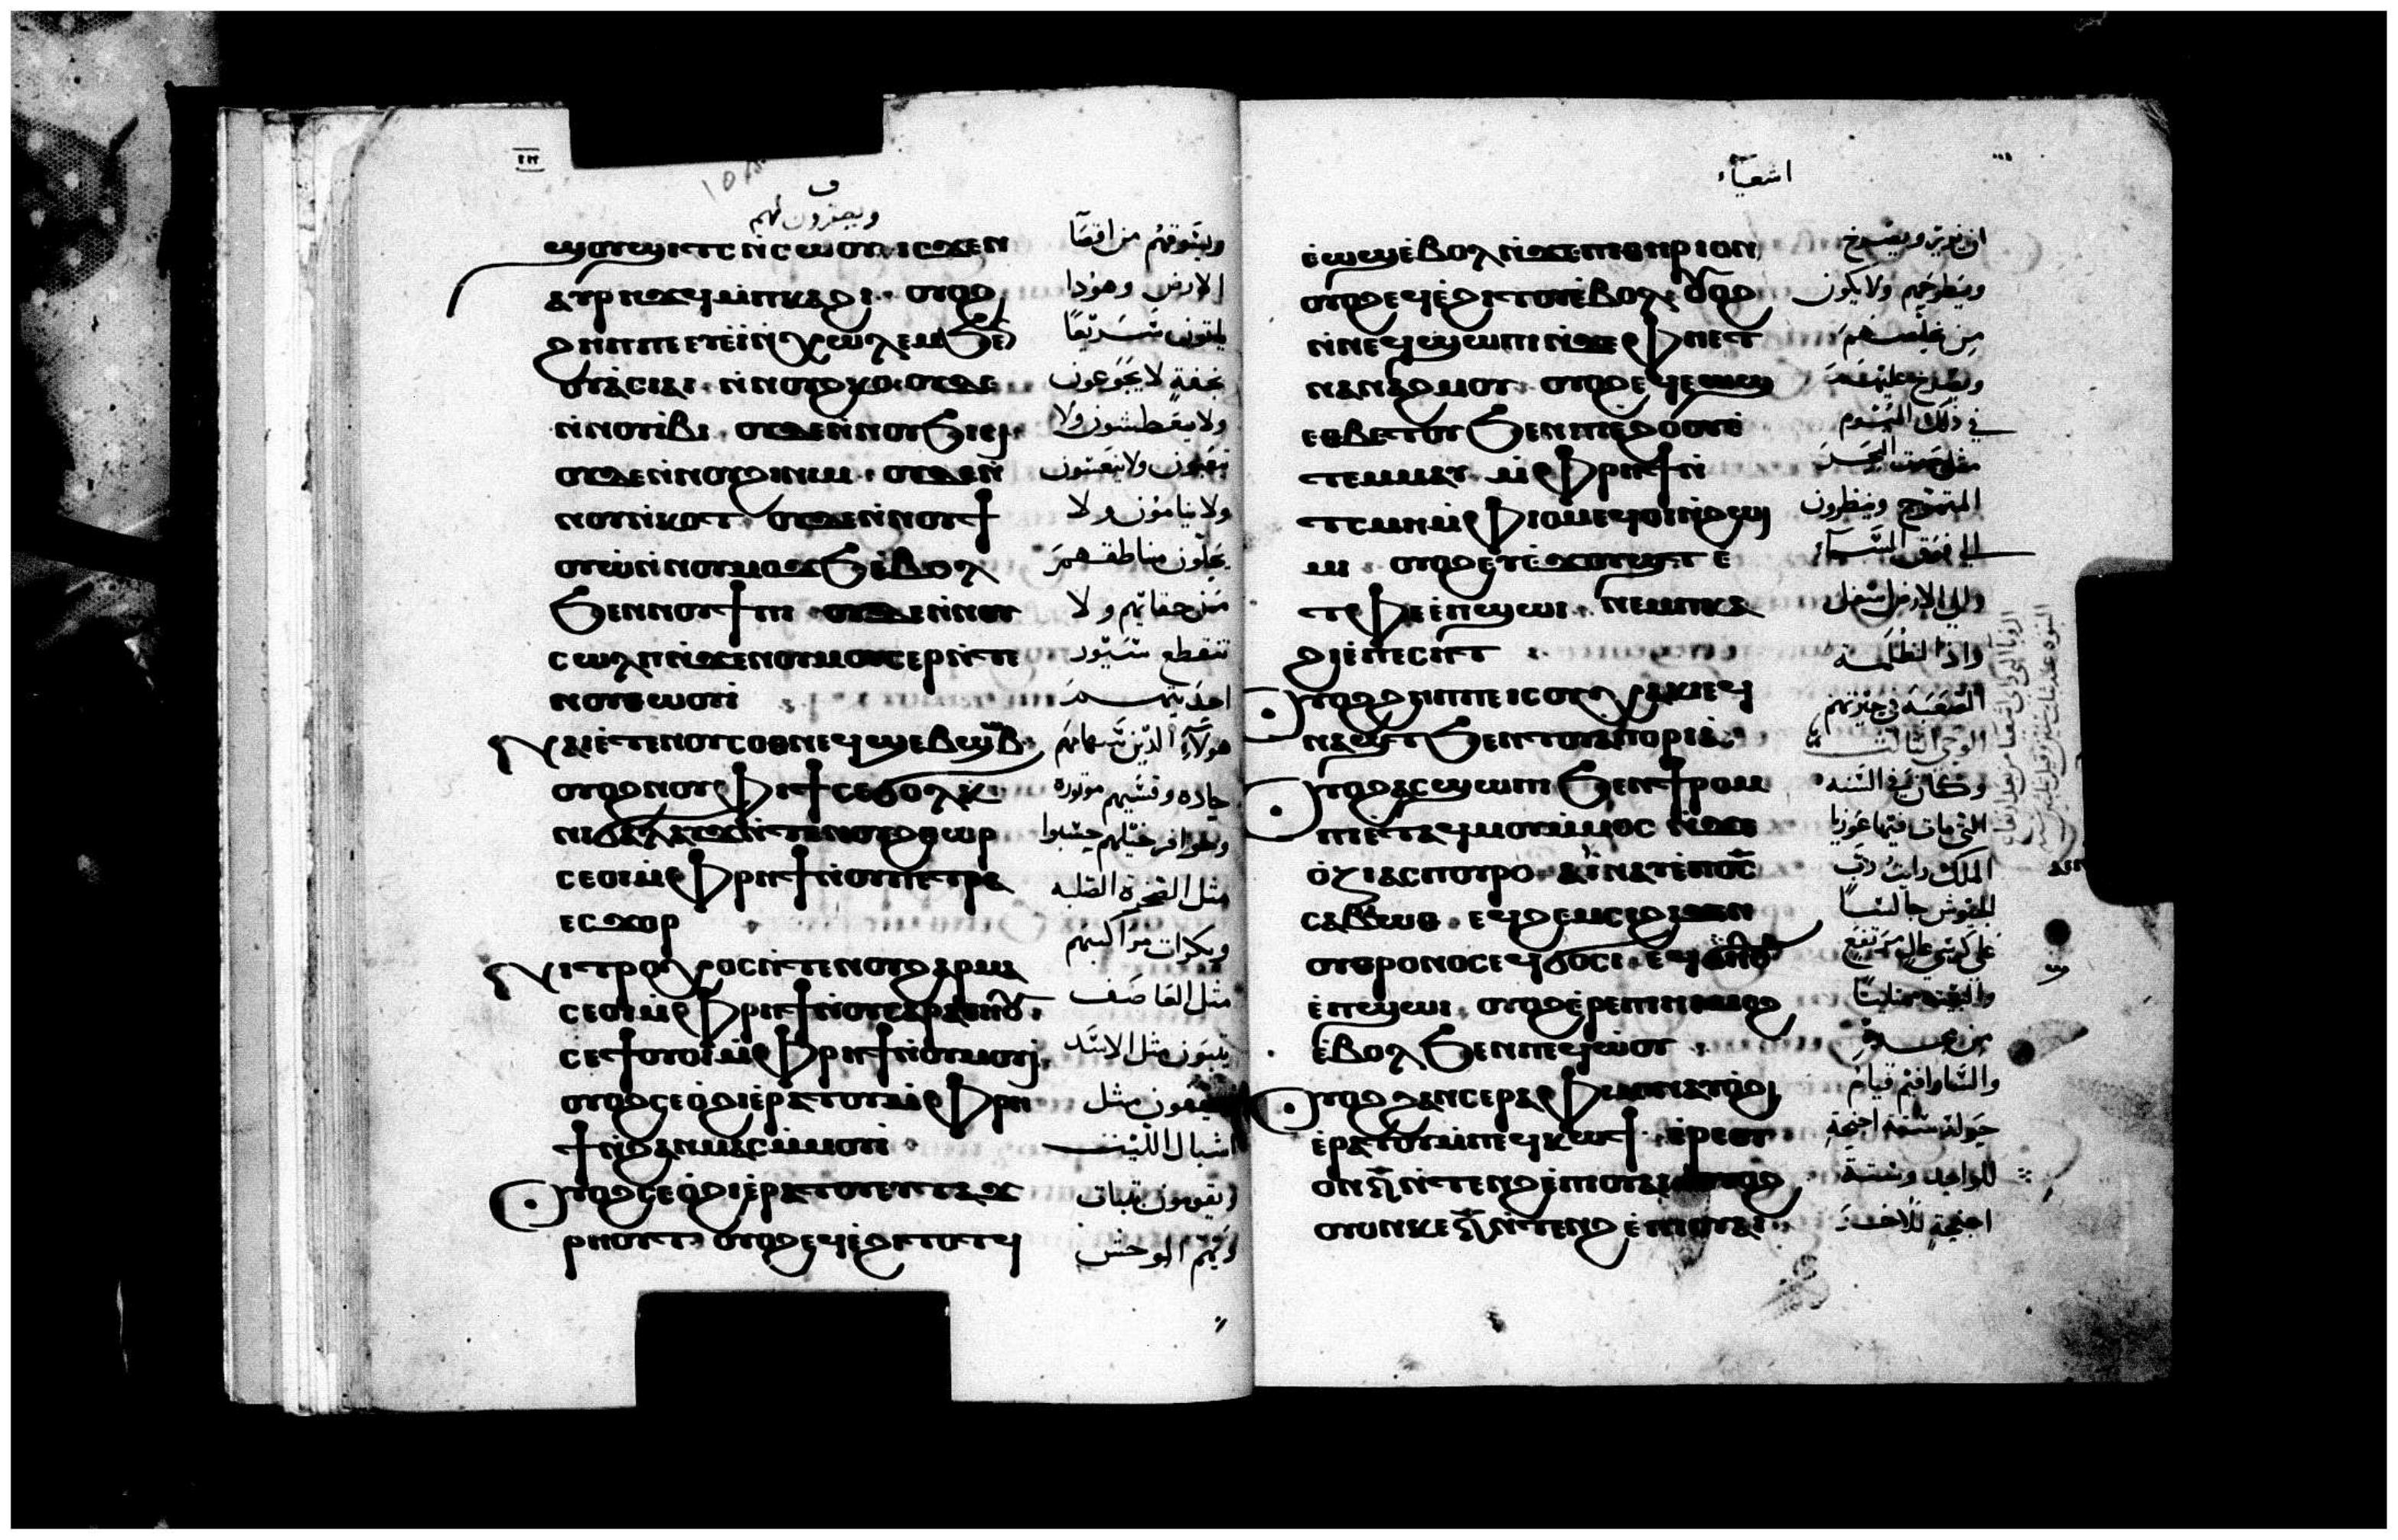 ⲉϣⲟⲩϣⲓⲧⲥ ⲛ̀ⲥⲱⲟⲩ ⲓⲥϫⲉⲛ
ⲁⲩⲣⲏϫϥ ⲙ̀ⲡⲕⲁϩⲓ ⲟⲩⲟϩ
ϩⲏⲡⲡⲉ ⲉⲧⲉⲓ̀ ⲛ̀ⲭⲱⲗⲉⲙ ϧⲉ
ⲟⲩⲁ̀ⲥⲓⲁⲓ ⲛ̀ⲛⲟⲩϩⲕⲟ ⲟⲩⲇⲉ
ⲛ̀ⲛⲟⲩⲓ̀ⲃⲓ ⲟⲩⲇⲉ ⲛ̀ⲛⲟⲩϧⲓⲥⲓ
ⲟⲩⲇⲉ ⲛ̀ⲛⲟⲩϩⲓⲛⲓⲙ ⲟⲩⲇⲉ ⲛ̀
ⲛⲟⲩⲛ̀ⲕⲟⲧ ⲟⲩⲇⲉ ⲛ̀ⲛⲟⲩϯ
ⲟⲩⲱ̀ ⲛ̀ⲛⲟⲩⲙⲟϫϧ ⲉ̀ⲃⲟⲗ
ϧⲉⲛ ⲛⲟⲩϯⲡⲓ ⲟⲩⲇⲉ ⲛ̀ⲛⲟⲩ
ⲥⲱⲗⲡ ⲛ̀ϫⲉ ⲛⲟⲩⲙⲟⲩⲥⲉⲣ ⲛ̀ⲧⲉ
ⲛⲟⲩⲑⲱⲟⲩⲓ̀
ⲛⲁⲓ ⲉ̀ⲧⲉ ⲛⲟⲩⲥⲟⲑⲛⲉϥ ϣⲉⲃϣⲏⲃ
ⲟⲩⲟϩ ⲛⲟⲩⲫⲓϯ ⲥⲉϭⲟⲗⲕ
ⲛⲓϭⲁⲗⲁⲩϫ ⲛ̀ⲧⲉ ⲛⲟⲩϩⲑⲱⲣ
ⲥⲉⲟⲓ ⲙ̀ⲫⲣⲏϯ ⲛ̀ⲟⲩⲡⲉⲧⲣⲁ
ⲉⲥϫⲟⲣ
ⲛⲓⲧⲣⲟⲭⲟⲥ ⲛ̀ⲧⲉ ⲛⲟⲩϩⲁⲣⲙⲁ
ⲥⲉⲟⲓ ⲙ̀ⲫⲣⲏϯ ⲛ̀ⲟⲩⲥⲁⲣⲁⲑⲏⲟⲩ
ⲥⲉϯⲟⲩⲟⲓ ⲙ̀ⲫⲣⲏϯ ⲛ̀ⲟⲩⲙⲟⲩⲓ
ⲟⲩⲟϩ ⲥⲉⲟ̀ϩⲓ ⲉ̀ⲣⲁⲧⲟⲩ ⲙ̀ⲫⲣⲏ
ϯ ⲛ̀ϩⲁⲛⲙⲁⲥ ⲙ̀ⲙⲟⲩⲓ
ⲟⲩⲟϩ ⲥⲉⲟ̀ϩⲓ ⲉ̀ⲣⲁⲧⲟⲩ ⲉⲩⲧⲁϫ
ⲣⲏⲟⲩⲧ ⲟⲩⲟϩ ⲉϥⲉ̀ϩⲓⲧⲟⲧϥ
ويصفرون لهم
ويشوقهم من اقصا
الارض وهوذا
ياتون سريعًا
بخفة لا يجوعون
ولا يعطشون ولا
يتعبون ولا ينعسون
ولا ينامون ولا
يحلون مناطقهم
من حقايهم ولا
تنقطع سيور
احذيتهم
هولاء الذين سهامهم
حاده وقسيهم موتوره
وحوافر خيلهم حسبوا
مثل الصخرة الصلبه
وبكرات مراكبهم
مثل العاصف
يثبون مثل الاسد
ويقفون مثل
اشبال الليث
ويقومون بثبات
ويهم الوحش
اشعياء
ⲉ̀ⲱϣ ⲉ̀ⲃⲟⲗ ⲛ̀ϫⲉ ⲡⲓⲑⲏⲣⲓⲟⲛ
ⲟⲩⲟϩ ⲉϥⲉ̀ϩⲓⲧⲟⲩ ⲉ̀ⲃⲟⲗ ⲟⲩⲟϩ
ⲛ̀ⲛⲉϥϣⲱⲡⲓ ⲛ̀ϫⲉ ⲫⲏⲉⲧ
ⲛⲁⲛⲁϩⲙⲟⲩ ⲟⲩⲟϩ ⲉϥⲉⲱϣ
ⲉⲑⲃⲏⲧⲟⲩ ϧⲉⲛ ⲡⲓⲉ̀ϩⲟⲟⲩ ⲉ̀
ⲧⲉⲙⲙⲁⲩ ⲙ̀ⲫⲣⲏϯ ⲛ̀
ⲧⲥⲙⲏ ⲙ̀ⲫⲓⲟⲙ ⲉϥⲟⲓ ⲛ̀ϩⲱⲓ
ⲙⲓ ⲟⲩⲟϩ ⲉⲩⲉ̀ϫⲟⲩϣⲧ ⲉ̀
ⲧⲫⲉ ⲉ̀ⲡϣⲱⲓ ⲛⲉⲙ ⲡⲕⲁ
ϩⲓ ⲉ̀ⲡⲉⲥⲏⲧ
ⲟⲩⲟϩ ϩⲏⲡⲡⲉ ⲓⲥ ⲟⲩⲭⲁⲕⲓ ⲉϥ
ⲛⲁϣⲧ ϧⲉⲛ ⲧⲟⲩⲁⲡⲟⲣⲓⲁ
ⲟⲩⲟϩ ⲁⲥϣⲱⲡⲓ ϧⲉⲛ ϯⲣⲟⲙ
ⲡⲓ ⲉ̀ⲧⲁϥⲙⲟⲩ ⲙ̀ⲙⲟⲥ ⲛ̀ϫⲉ
ⲟ̀ⲍⲓⲁⲥ ⲡⲟⲩⲣⲟ ⲁⲓⲛⲁⲩ ⲉ̀ⲡⲟ̅ⲥ̅
ⲥⲁⲃⲁⲱⲑ ⲉϥϩⲉⲙⲥⲓ ϩⲓϫⲉⲛ
ⲟⲩⲑⲣⲟⲛⲟⲥ ⲉϥϭⲟⲥⲓ
ⲉ̀ⲡϣⲱⲓ ⲟⲩⲟϩ ⲉ̀ⲣⲉ ⲡⲓⲏⲓ ⲙⲉϩ
ⲉ̀ⲃⲟⲗ ϧⲉⲛ ⲡⲉϥⲱ̀ⲟⲩ
ⲟⲩⲟϩ ϩⲁⲛⲥⲉⲣⲁⲫⲓⲙ ⲛⲁⲩⲟ̀ϩⲓ
ⲉ̀ⲣⲁⲧⲟⲩ ⲙ̀ⲡⲉϥⲕⲱϯ ⲉ̀ⲣⲉ ⲟⲩ
ⲟⲛ ⲋ̅ ⲛ̀ⲧⲉⲛϩ ⲉ̀ⲡⲓⲟⲩⲁⲓ ⲟⲩⲟϩ
ⲟⲩⲟⲛ ⲕⲉ ⲋ̅ ⲛ̀ⲧⲉⲛϩ ⲉ̀ⲡⲓⲟⲩⲁⲓ
ويطرحهم ولا يكون
من يخلصهم
ويصرخ عليهم
في ذلك اليوم
مثل صوت البحر
المتموج وينظرون
الى فوق السماء
والى الارض اسفل
واذا الظلمة
الصعبة في حيرتهم
الوحي الثالث
وكان في السنه
التي مات فيها عوزيا
الملك رايت رب
الجيوش جالسًا
على كرسي عال مرتفع
والبيت ممتليًا
من مجده
والسارافيم قيام
حوله ستة اجنحة
للواحد وستة
اجنحة للاخر